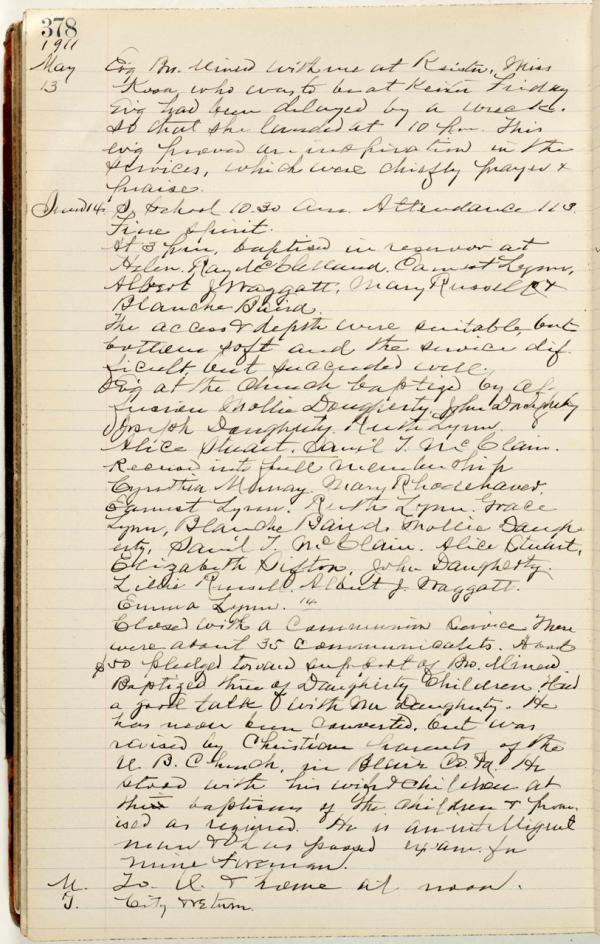 378
1911
May Evg Bro. Minerd with me at Keister, Miss
13 Kosa, who was to be at Keister Friday
Evg had been delayed by a wreck.
So that she landed at 10 pm. This
evg proved an inspiration in the
services, which were chiefly prayer &
praise.
Sund 14. S School 10.30 Am. Attendance 113.
Fine spirit.
At 3 pm, baptised in reservoir at
Helen. Ray McClelland. Earnest Lynn,
Albert J Waggatt, Mary Russell &
Blanche Baird.
The access & depth were suitable but
bottom soft and the service dif.
ficult, but succeeded well.
Evg at the Church baptized by ef
fusion Mollie Daugherty, John Daugherty
Joseph Daugherty. Ruth Lynn.
Alice Stuart. David T. McClain.
Received into full membership
Cynthia Murray. Mary Rhodehaver.
Earnest Lynn. Ruth Lynn. Grace
Lynn, Blanche Baird. Mollie Daugh
erty, David T. McClain. Alice Stuart,
Elizabeth Sifton, John Daugherty.
Lillie Russell. Albert J. Waggatt.
Emma Lynn. 14
Closed with a Communion Service There
were about 35 communicants. About
$50 pledged toward support of Bro. Minerd.
Baptized three of Daugherty Children. Had
a good talk with Mr Daugherty. He
has never been converted, but was
raised by Christian parents of the
U. B. Church, in Blair Co. Pa. He
stood with his wife & children at
the baptism of the children & prom
ised as required. He is an intelligent
man & has passed exam. for
mine foreman.
M. To U. & home at noon.
T. City & return.